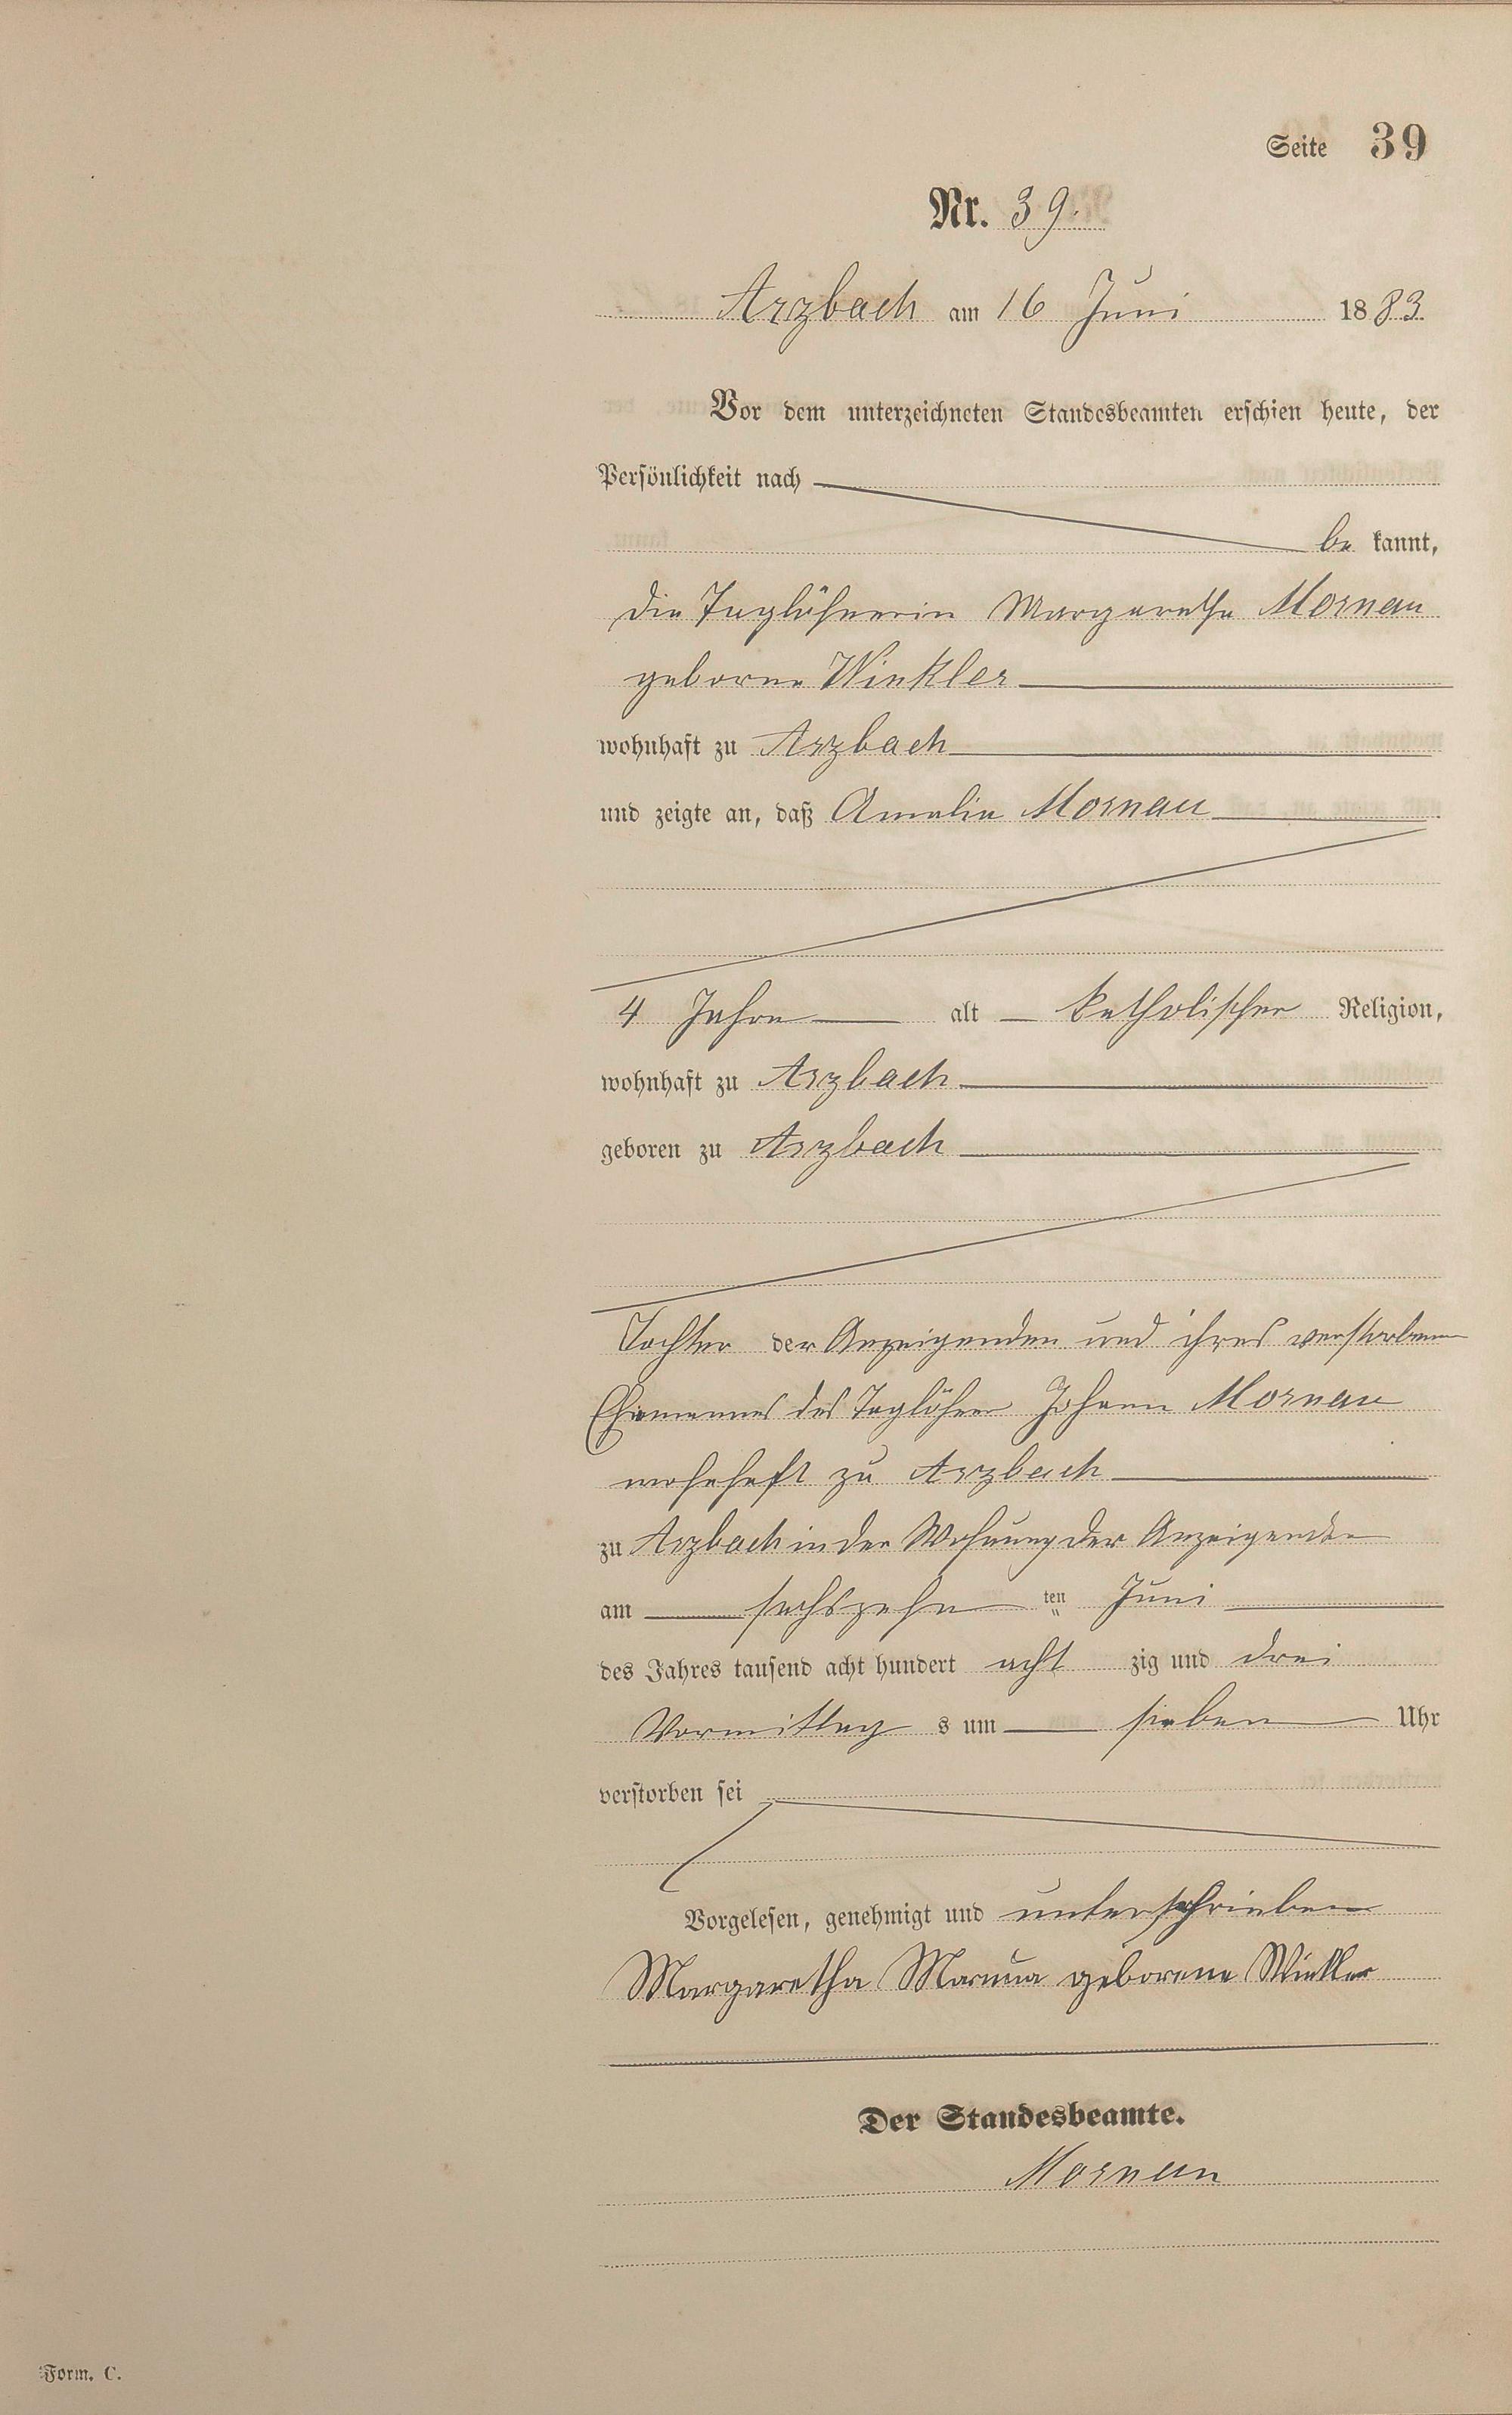 Seite 39
Nr. 39.
Arzbach am 16 Juni 1883.
Vor dem unterzeichneten Standesbeamten erschien heute, der
Persönlichkeit nach
bekannt,
die Taglöhnerin Margaretha Mornau
geborne Winkler
wohnhaft zu Arzbach
und zeigte an, daß Amalia Mornau
4 Jahre alt katholischer Religion,
wohnhaft zu Arzbach
geboren zu Arzbach
Tochter der Anzeigenden und ihres verstorbenen
Ehemannes des Taglöhner Johann Mornau
wohnhaft zu Arzbach
zu Arzbach in der Wohnung der Anzeigenden
am sechszehn ten Juni
des Jahres tausend acht hundert acht zig und drei
Vormittag s um sieben Uhr
verstorben sei
Vorgelesen, genehmigt und unterschrieben
Margaretha geborene Winkler
Der Standesbeamte.
Mornau
Form. C.